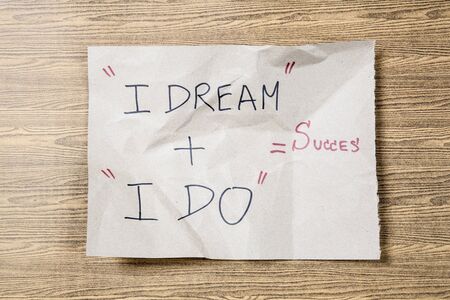 "I DREAM"
+ = Succes
"I DO"